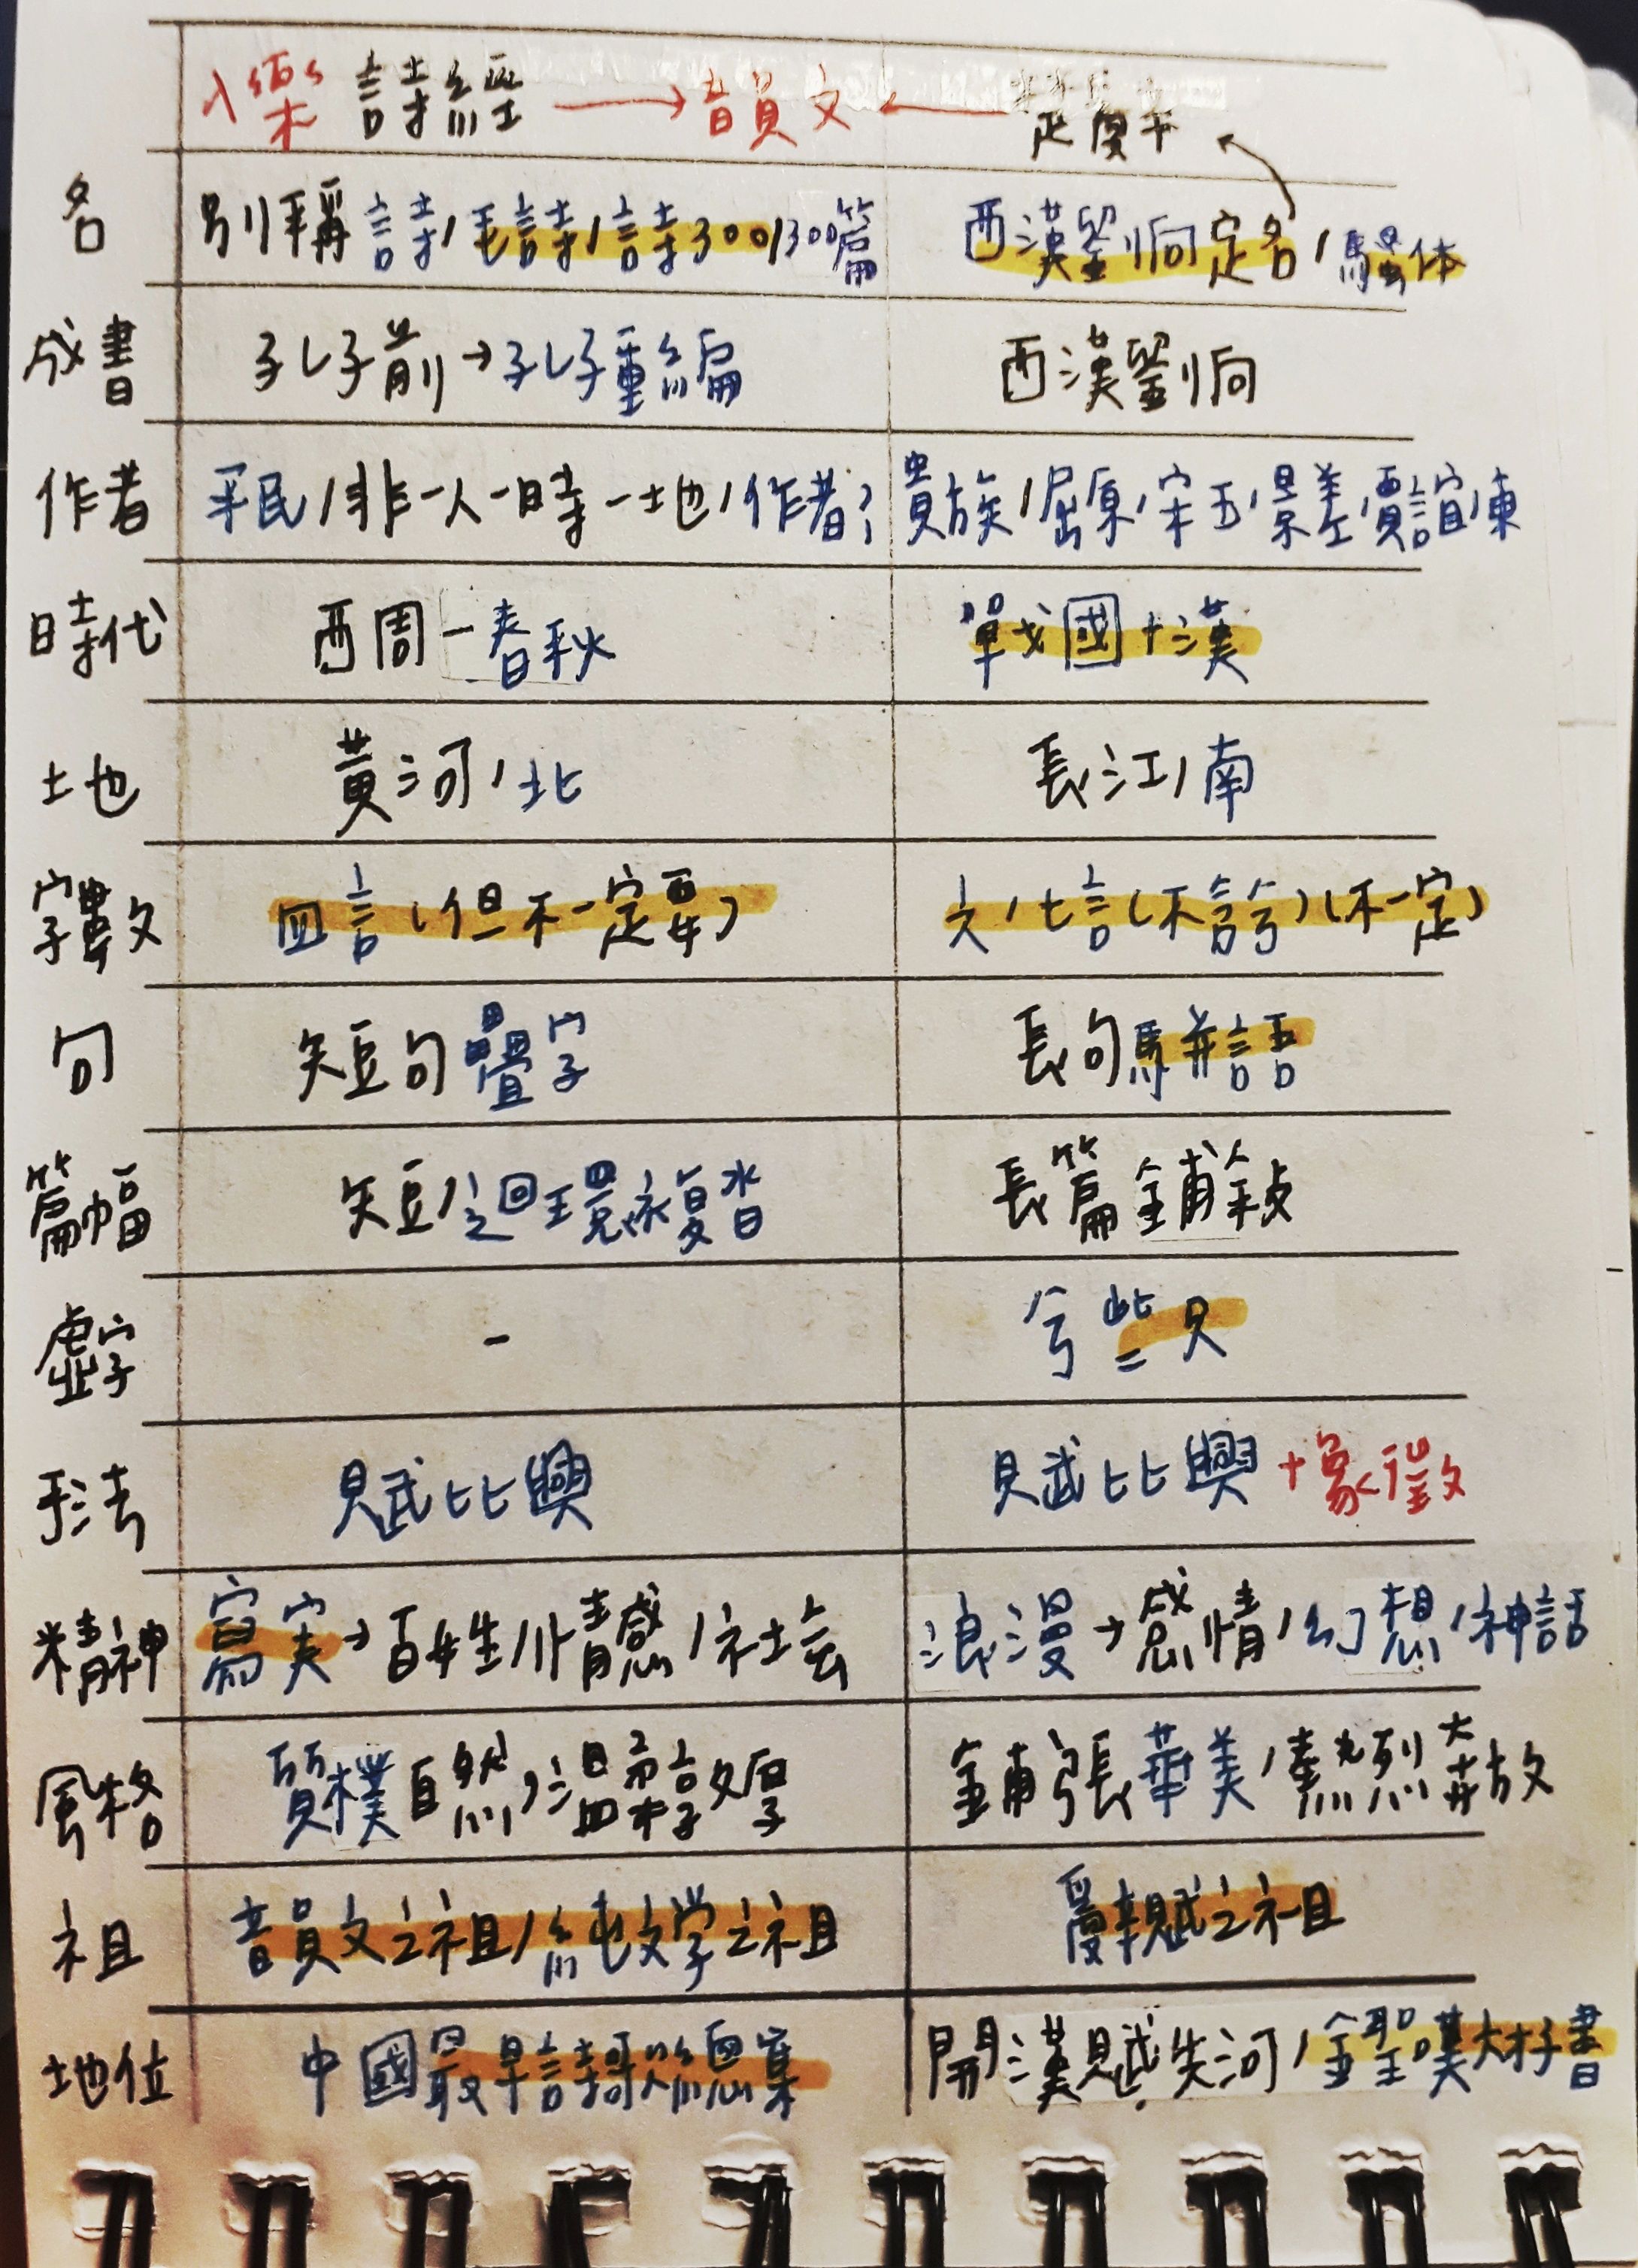 入樂 詩經 → 韻文 ← 楚辭
名 別稱詩/毛詩/詩300/300篇 西漢劉向定名/騷体
成書 孔子前→孔子重編 西漢劉向
作者 平民/非一人一時一地/作者? 貴族/屈原/宋玉/景差/賈誼/東
時代 西周-春秋 戰國+漢
土地 黃河/北 長江/南
字數 四言(但不一定要) 六/七言(不含兮)(不一定)
句 短句疊字 長句駢語
篇幅 短/迴環復沓 長篇鋪敘
虛字 - 兮些只
手法 賦比興 賦比興+象徵
精神 寫实→百姓/情感/社会 浪漫→感情/幻想/神話
風格 質樸自然/溫柔敦厚 鋪張華美/熱烈奔放
祖 韻文之祖/純文学之祖 辭賦之祖
地位 中國最早詩歌總集 開漢賦先河/金聖嘆才子書